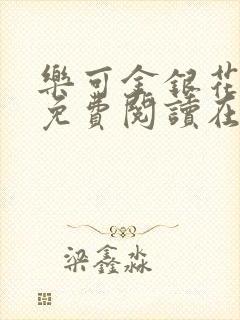 樂可金銀花
免費閱讀在
梁鑫淼